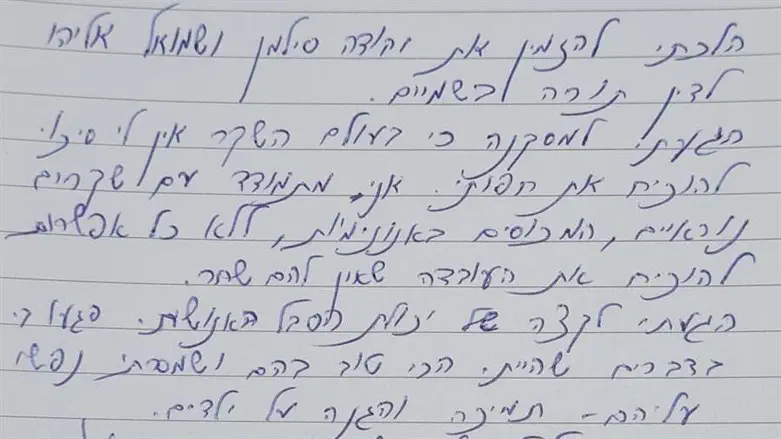 הלכתי להזמין את יהודה סילמן ושמואל אליהו
לדין תורה בשמיים.
הגעתי למסקנה כי בעולם השקר אין לי סיכוי
להוכיח את חפותי. אני מתמודד עם שקרים
נוראיים, המכוסים באנונימיות, ללא כל אפשרות
להוכיח את העובדה שאין להם שחר.
הגעתי לקצה של יכולת הסבל האנושית. פגעו בי
בדברים שהייתי הכי טוב בהם ושמסרתי נפשי
עליהם - תמיכה והגנה על ילדים.